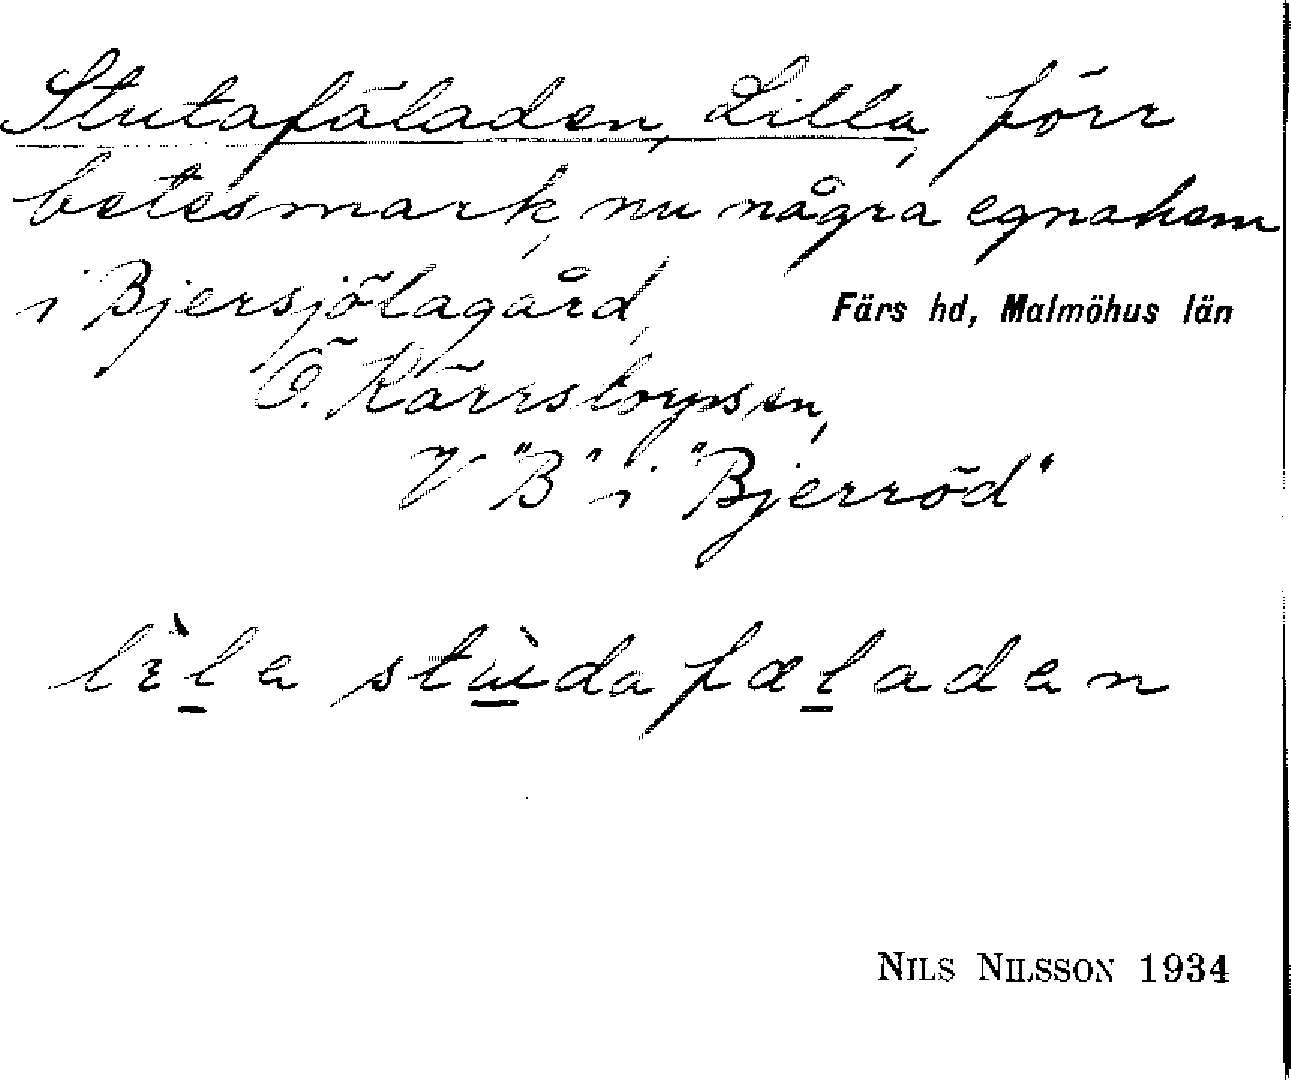 Stutafäladen, Lilla, förr
betesmark, nu några egnahem
i Bjersjölagård, Färs hd, Malmöhus län
Ö. Kärrstorpssn,
V "B" i "Bjerröd"
lìla stùdafæladen
NILS NILSSON 1934